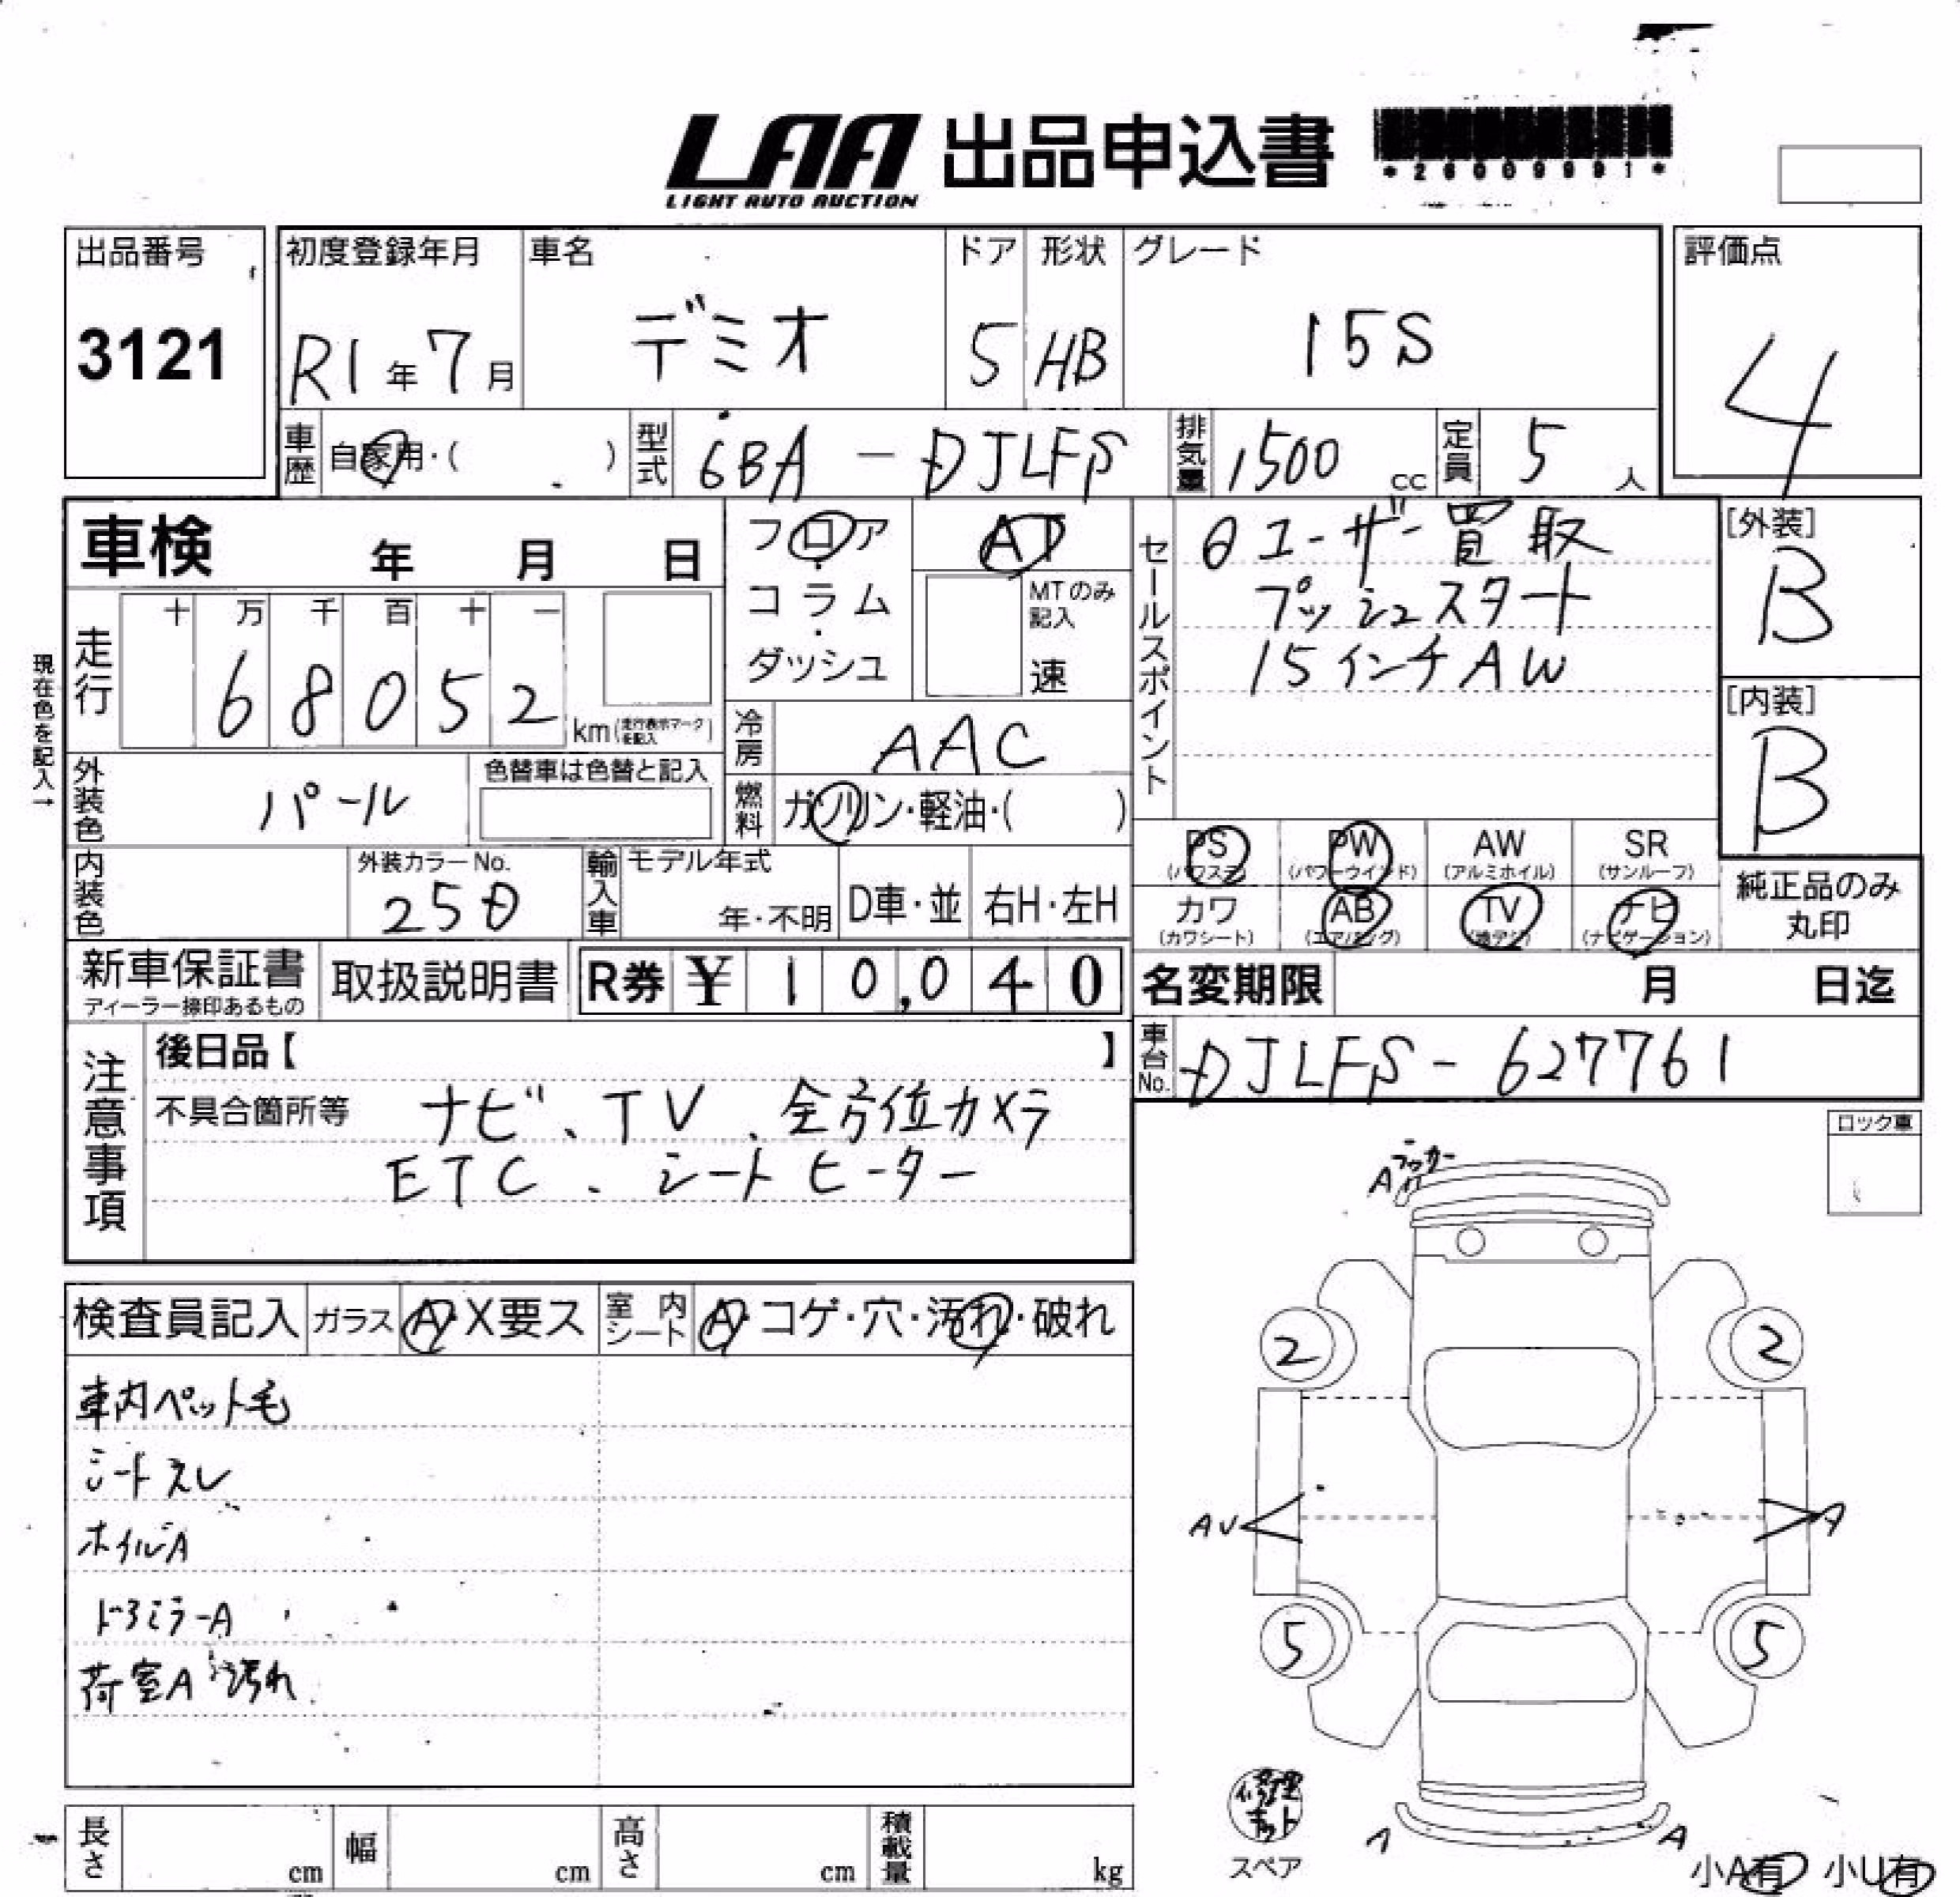 LAA 出品申込書
LIGHT AUTO AUCTION
*26009991*
出品番号 初度登録年月 車名 ドア 形状 グレード 評価点
3121 R1年7月 デミオ 5 HB 15S 4
車歴 自家用・( ) 型式 6BA-DJLFS 排気量 1500cc 定員 5人
車検 年 月 日
フロア・コラム・ダッシュ
AT
MTのみ記入
速
セールスポイント
θユーザー買取
プッシュスタート
15インチAW
[外装]
B
[内装]
B
現在色を記入→
走行 十 万 千 百 十 一
68052 km(走行表示マークを記入)
冷房 AAC
外装色 パール 色替車は色替と記入
燃料 ガソリン・軽油・( )
内装色 外装カラーNo. 25D
輸入車 モデル年式 年・不明 D車・並 右H・左H
PS (パワステ) PW (パワーウインド) AW (アルミホイル) SR (サンルーフ)
カワ (カワシート) AB (エアバッグ) TV (地デジ) ナビ (ナビゲーション)
純正品のみ丸印
新車保証書 ディーラー捺印あるもの 取扱説明書 R券 ¥10,040
名変期限 月 日迄
車台No. DJLFS-627761
注意事項
後日品【 】
不具合箇所等 ナビ、TV、全方位カメラ
ETC、シートヒーター
ロック車
Aラッカー
検査員記入 ガラス A・X要ス 室内シート A・コゲ・穴・汚れ・破れ
車内ペット毛
シートスレ
ホイルA
ドアミラーA
荷室A汚れ
2 2
AU A
5 5
修理キット
スペア
A A
小A有 小U有
長さ cm 幅 cm 高さ cm 積載量 kg